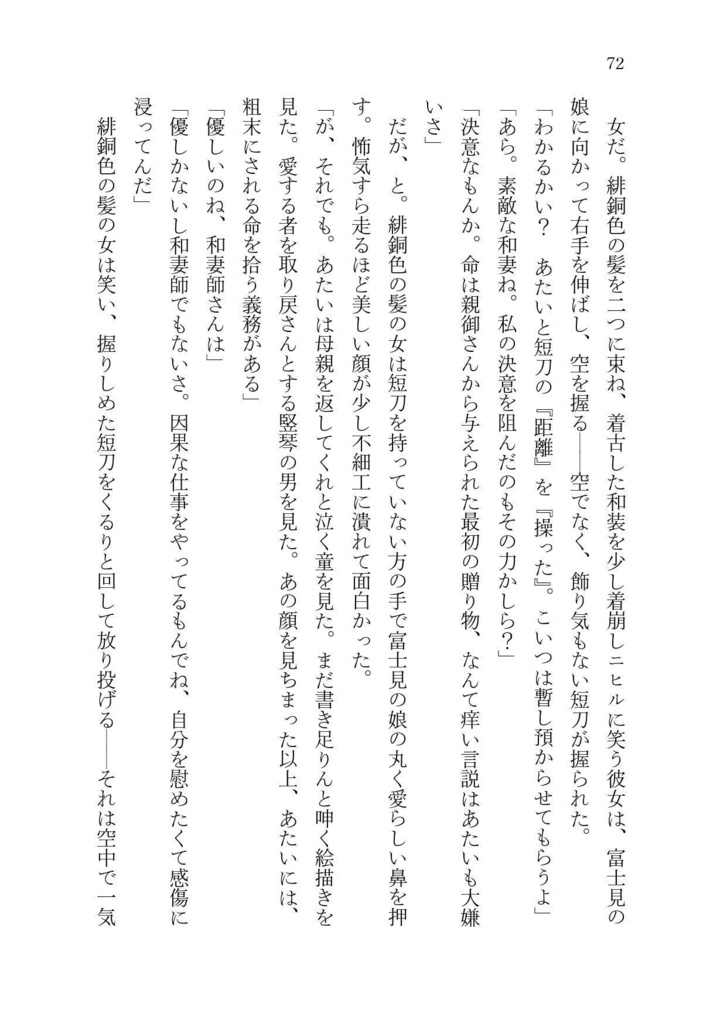 72
　女だ。緋銅色の髪を二つに束ね、着古した和装を少し着崩しニヒルに笑う彼女は、富士見の
娘に向かって右手を伸ばし、空を握る――空でなく、飾り気もない短刀が握られた。
「わかるかい？　あたいと短刀の『距離』を『操った』。こいつは暫し預からせてもらうよ」
「あら。素敵な和妻ね。私の決意を阻んだのもその力かしら？」
「決意なもんか。命は親御さんから与えられた最初の贈り物、なんて痒い言説はあたいも大嫌
いさ」
　だが、と。緋銅色の髪の女は短刀を持っていない方の手で富士見の娘の丸く愛らしい鼻を押
す。怖気すら走るほど美しい顔が少し不細工に潰れて面白かった。
「が、それでも。あたいは母親を返してくれと泣く童を見た。まだ書き足りんと呻く絵描きを
見た。愛する者を取り戻さんとする竪琴の男を見た。あの顔を見ちまった以上、あたいには、
粗末にされる命を拾う義務がある」
「優しいのね、和妻師さんは」
「優しかないし和妻師でもないさ。因果な仕事をやってるもんでね、自分を慰めたくて感傷に
浸ってんだ」
　緋銅色の髪の女は笑い、握りしめた短刀をくるりと回して放り投げる――それは空中で一気